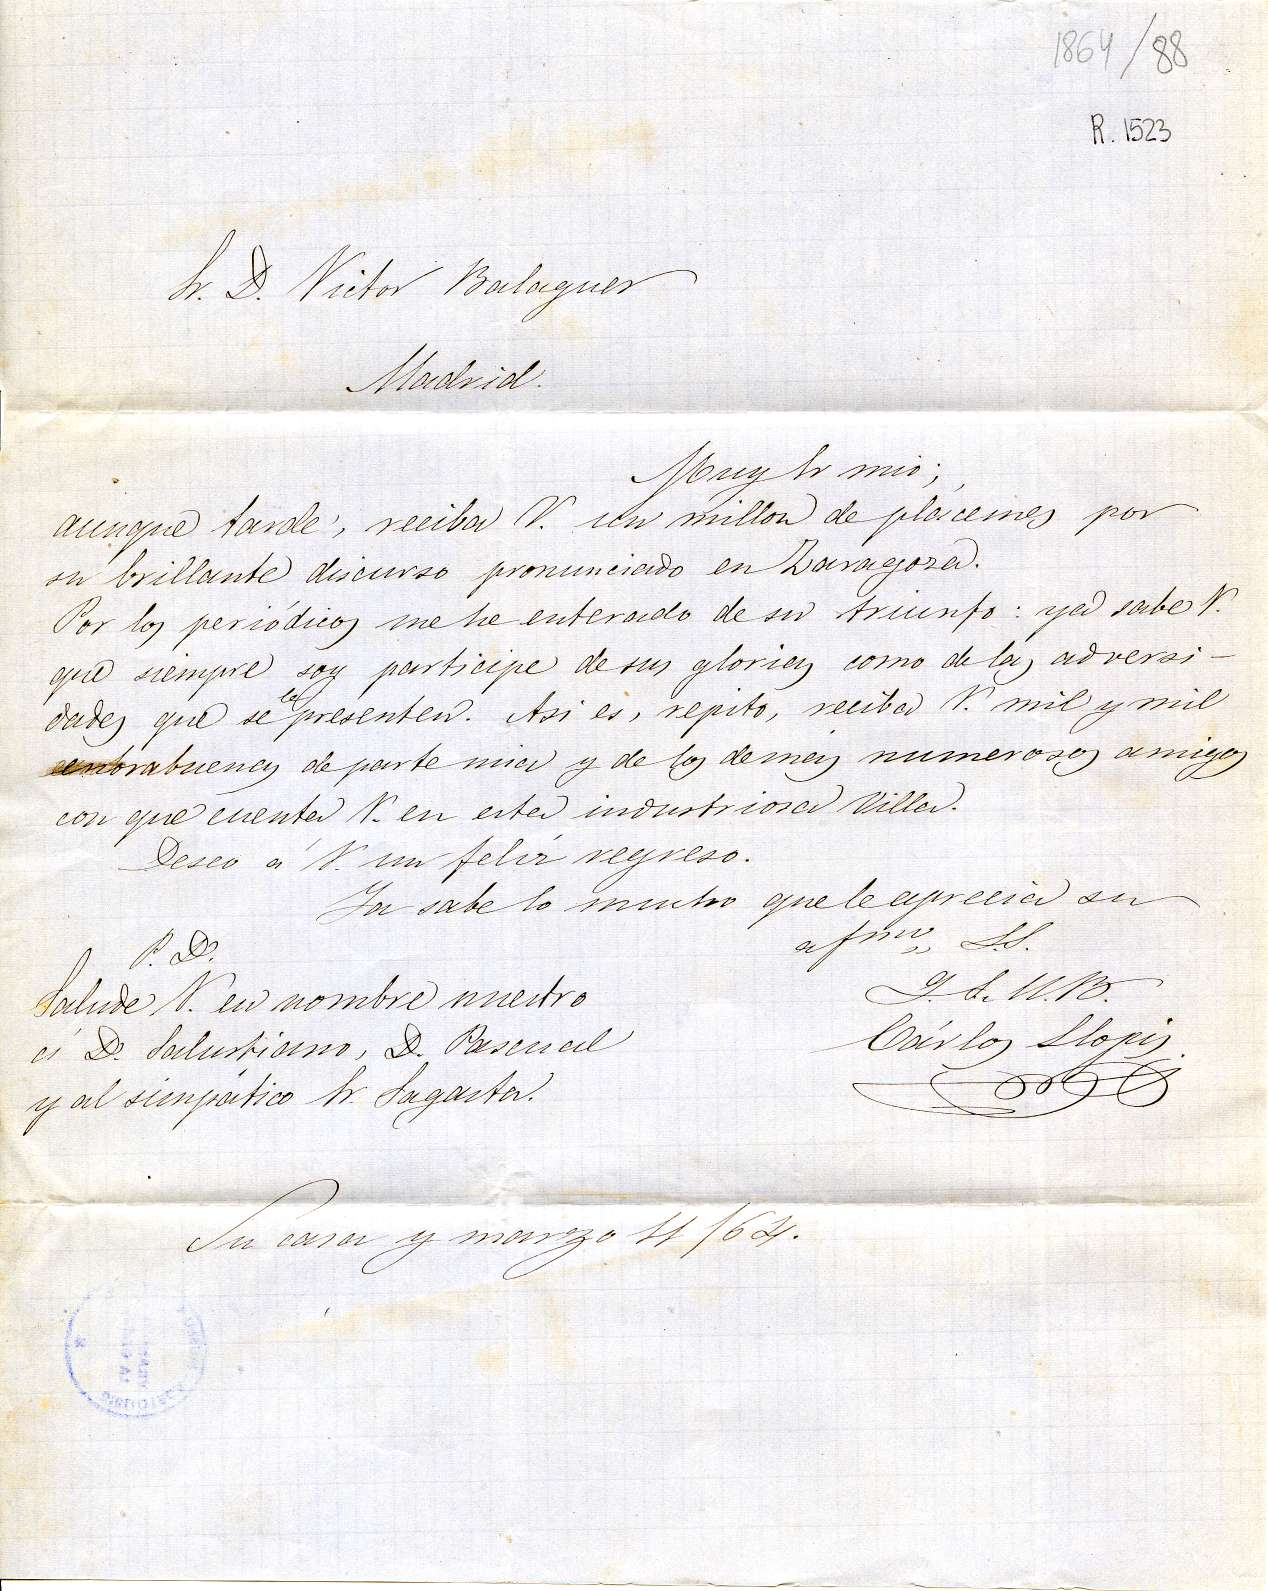 1864/88
R. 1523
Sr. D. Victor Balaguer
Madrid.
Muy Sr mio;
aunque tarde, reciba V. un millon de plácemes por
su brillante discurso pronunciado en Zaragoza.
Por los periódicos me he enterado de su triunfo: ya sabe V.
que siempre soy participe de sus glorias como de las adversi-
dades que se le presenten. Asi es, repito, reciba V. mil y mil
enorabuenas de parte mia y de los demás numerosos amigos
con que cuenta V. en esta industriosa Villa.
Deseo á V. un feliz regreso.
Ya sabe lo mucho que le aprecia su
afmo S.S.
Q. S. M. B.
Cárlos Llopis
P. D.
Salude V. en nombre nuestro
á D. Salustiano, D. Pascual
y al simpático Sr. Sagasta.
Su casa y marzo 11/64.